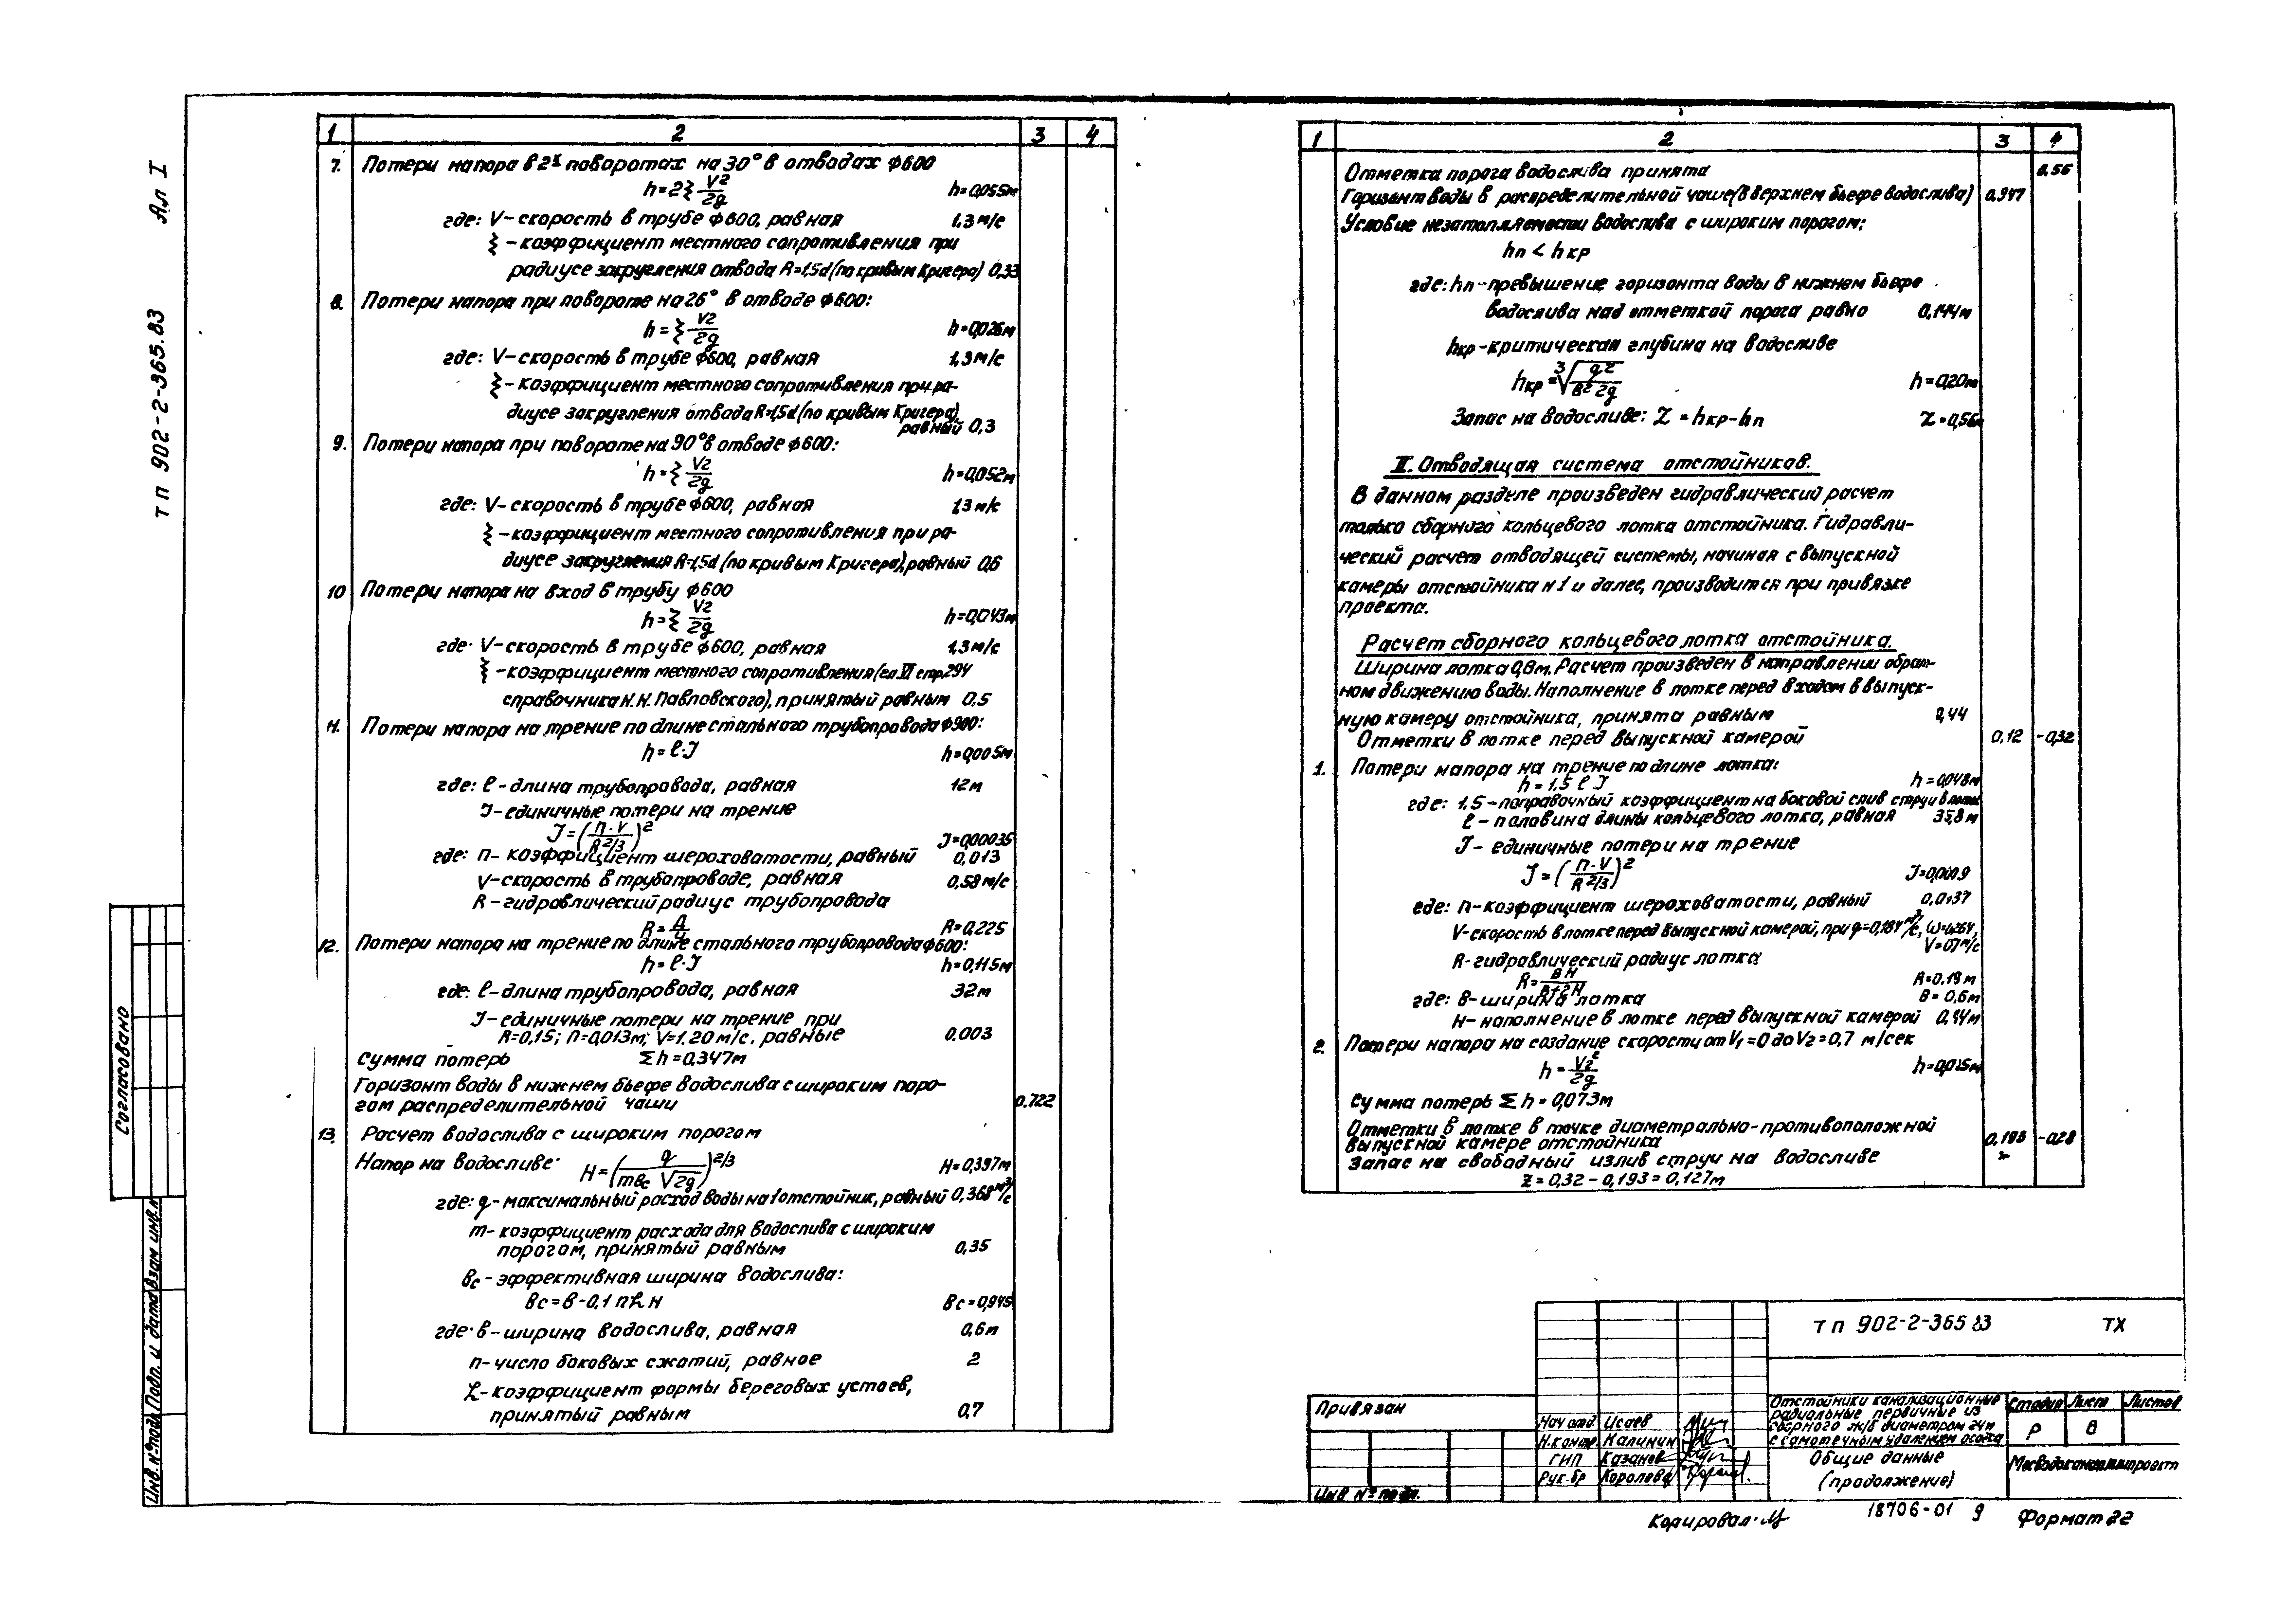 Ал I
т п 902-2-365.83
1 2 3 4
7. Потери напора в 2х поворотах на 30° в отводах ф600
h=2ξ V²/2g h=0,055м
где: V-скорость в трубе ф600, равная 1,3 м/с
ξ -коэффициент местного сопротивления при
радиусе закругления отвода R=1,5d (по кривым Кригера) 0,33
8. Потери напора при повороте на 26° в отводе ф600:
h=ξ V²/2g h=0,026м
где: V-скорость в трубе ф600, равная 1,3м/с
ξ-коэффициент местного сопротивления при ра-
диусе закругления отвода R=1,5d (по кривым Кригера),
равный 0,3
9. Потери напора при повороте на 90° в отводе ф600:
h=ξ V²/2g h=0,052м
где: V-скорость в трубе ф600, равная 1,3 м/с
ξ-коэффициент местного сопротивления при ра-
диусе закругления R=1,5d (по кривым Кригера), равный 0,6
10 Потери напора на вход в трубу ф600
h=ξ V²/2g h=0,043м
где: V-скорость в трубе ф600, равная 1,3 м/с
ξ-коэффициент местного сопротивления (гл VI стр. 294
справочника Н.Н. Павловского), принятый равным 0,5
11. Потери напора на трение по длине стального трубопровода ф900:
h= ℓ·J h=0,005м
где: ℓ-длина трубопровода, равная 12м
J-единичные потери на трение
J=(n·V/R^2/3)² J=0,00035
где: n- коэффициент шероховатости, равный 0,013
V-скорость в трубопроводе, равная 0,58 м/с
R-гидравлический радиус трубопровода
R=Д/4 R=0,225
12. Потери напора на трение по длине стального трубопровода ф600:
h=ℓ·J h=0,115м
где: ℓ-длина трубопровода, равная 32м
J-единичные потери на трение при
R=0,15; n=0,013м; V=1.20 м/с. равные 0.003
Сумма потерь Σh=0,347м
Горизонт воды в нижнем бьефе водослива с широким поро-
гом распределительной чаши 0.722
13. Расчет водослива с широким порогом
Напор на водосливе: H=(q/mвс √2g)^2/3 H=0,397м
где: q-максимальный расход воды на 1 отстойник, равный 0,368 м³/с
m-коэффициент расхода для водослива с широким
порогом, принятый равным 0,35
вс-эффективная ширина водослива:
вс=в-0,1 nL H вс=0,945
где: в-ширина водослива, равная 0,6м
n-число боковых сжатий, равное 2
L-коэффициент формы береговых устоев,
принятый равным 0,7
1 2 3 4
Отметка порога водослива принята 0,56
Горизонт воды в распределительной чаше (в верхнем бьефе водослива) 0,947
Условие незатопляемости водослива с широким порогом:
hп < hкр
где: hп-превышение горизонта воды в нижнем бьефе
водослива над отметкой порога равно 0,144м
hкр-критическая глубина на водосливе
hкр=³√q²/в²2g h=0,20м
Запас на водосливе: Z = hкр-hп Z=0,56м
II. Отводящая система отстойников.
В данном разделе произведен гидравлический расчет
только сборного кольцевого лотка отстойника. Гидравли-
ческий расчет отводящей системы, начиная с выпускной
камеры отстойника н1 и далее, производится при привязке
проекта.
Расчет сборного кольцевого лотка отстойника.
Ширина лотка 0,8м. Расчет произведен в направлении обрат-
ном движению воды. Наполнение в лотке перед входом в выпуск-
ную камеру отстойника, принята равным 0,44
Отметки в лотке перед выпускной камерой 0,12 -0,32
1. Потери напора на трение по длине лотка:
h = 1,5 ℓ J h=0,048м
где: 1,5-поправочный коэффициент на боковой слив струи в лоток
ℓ - половина длины кольцевого лотка, равная 35,8 м
J- единичные потери на трение
J=(n·V/R^2/3)² J=0,0009
где: n-коэффициент шероховатости, равный 0,0137
V-скорость в лотке перед выпускной камерой, при q=0,184 м³/с, ω=0,264,
V=0,7 м/с
R-гидравлический радиус лотка
R=вН/в+2Н R=0,18 м
где: в-ширина лотка в= 0,6м
Н-наполнение в лотке перед выпускной камерой 0,44м
2. Потери напора на создание скорости от V₁=0 до V₂=0,7 м/сек
h=V₂²/2g h=0,025м
Сумма потерь Σh=0,073м
Отметки в лотке в точке диаметрально-противоположной
выпускной камере отстойника 0,193 -0,28
Запас на свободный излив струи на водосливе
Z=0,32-0,193=0,127м
Согласовано
Инв.№ подл. Подп. и дата Взам инв.н
т п 902-2-365 83 ТХ
Привязан
Инв № подл.
Нач отд. Исаев
Н.контр. Калинин
ГИП Казанов
Рук.бр Королева
Отстойники канализационные
радиальные первичные из
сборного ж/б диаметром 24м
с самотечным удалением осадка
Стадия Лист Листов
Р 8
Общие данные
(продолжение)
Мосводоканалниипроект
Копировал:
18706-01 9
Формат 22